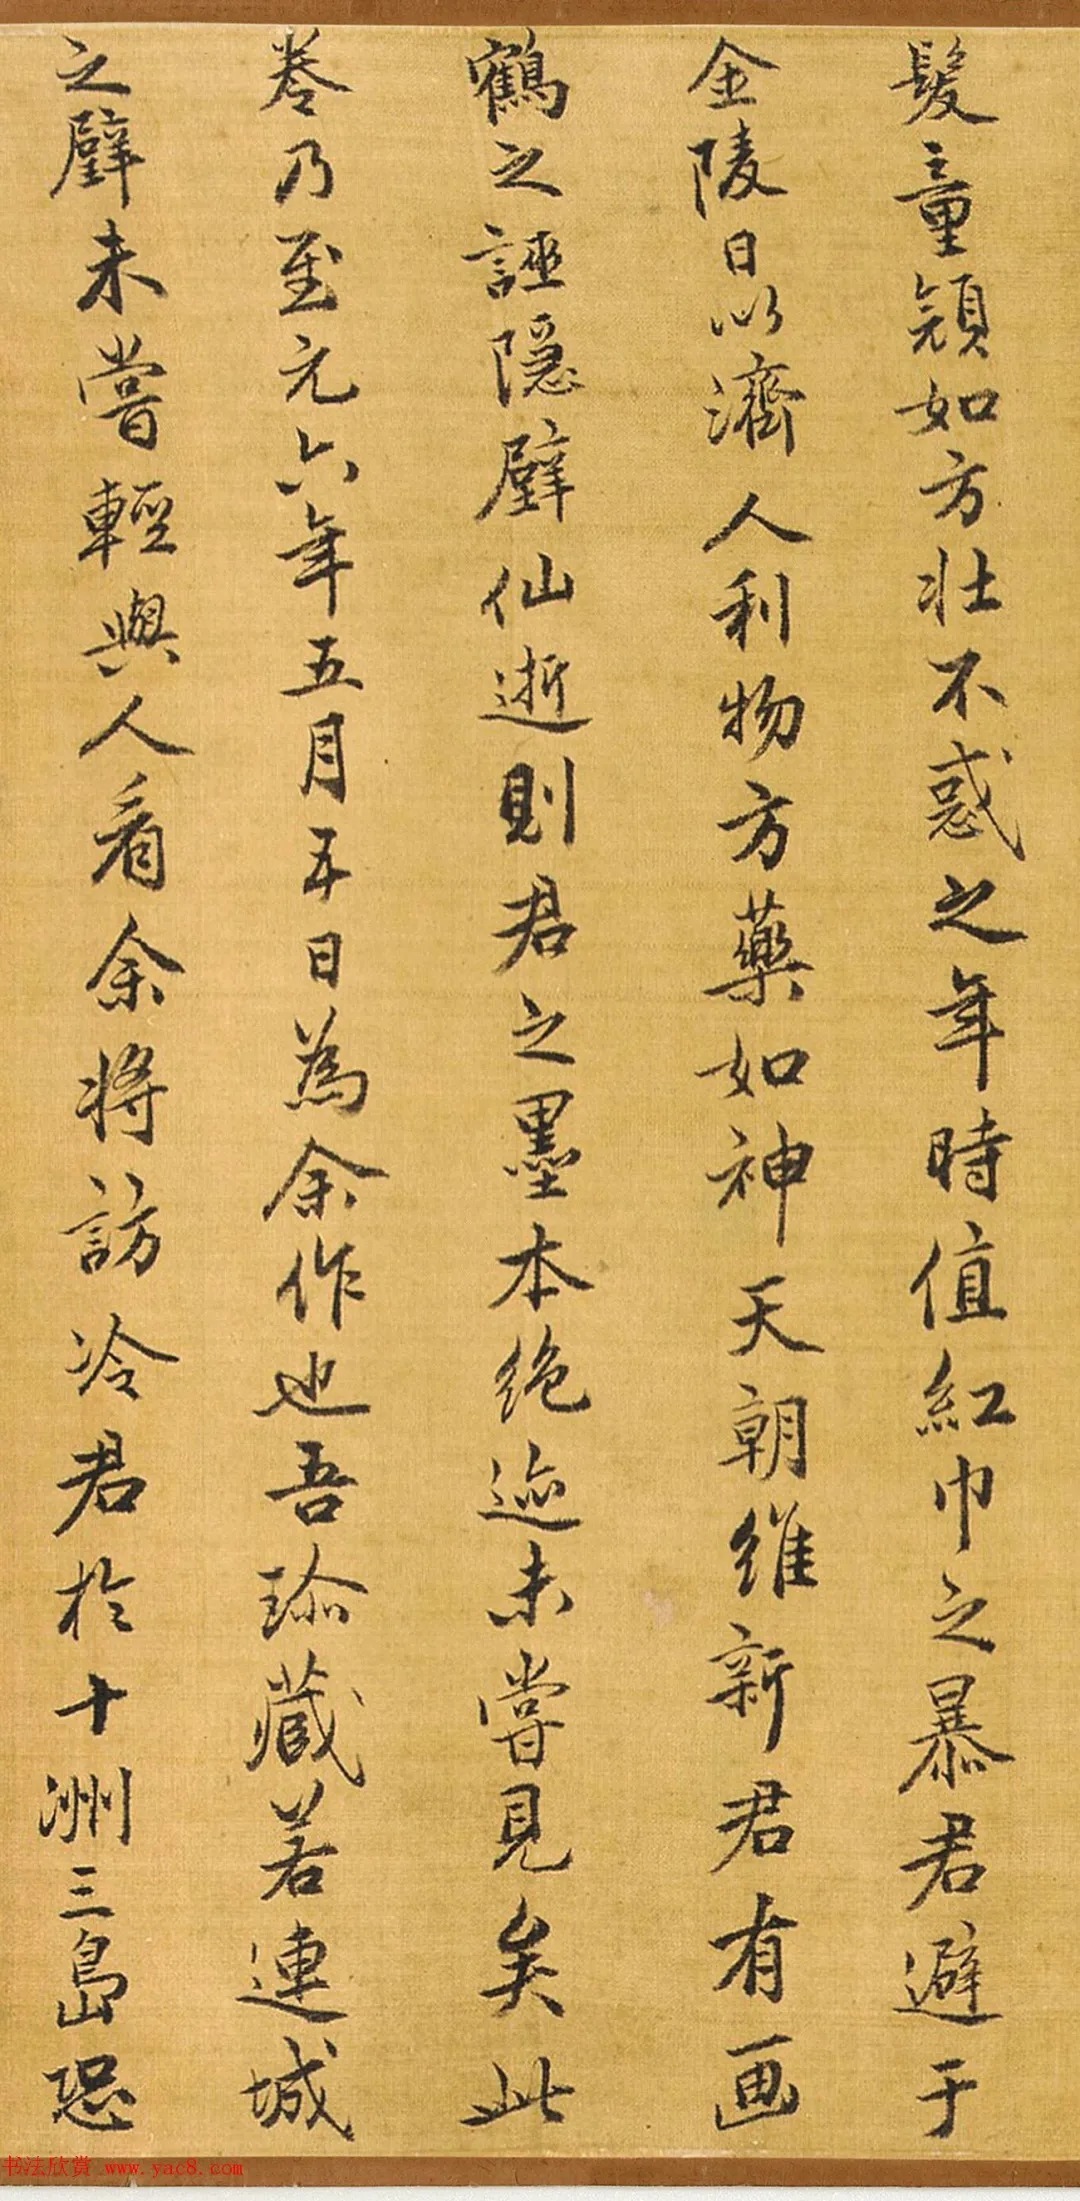 髮童顔如方壯不惑之年時值紅巾之暴君避于
金陵日以濟人利物方藥如神天朝維新君有画
鶴之誣隠壁仙逝則君之墨本絶迹未嘗見矣此
卷乃至元六年五月五日為余作也吾珍藏若連城
之璧未嘗輕與人看余將訪冷君於十洲三島恐
书法欣赏 www.yac8.com